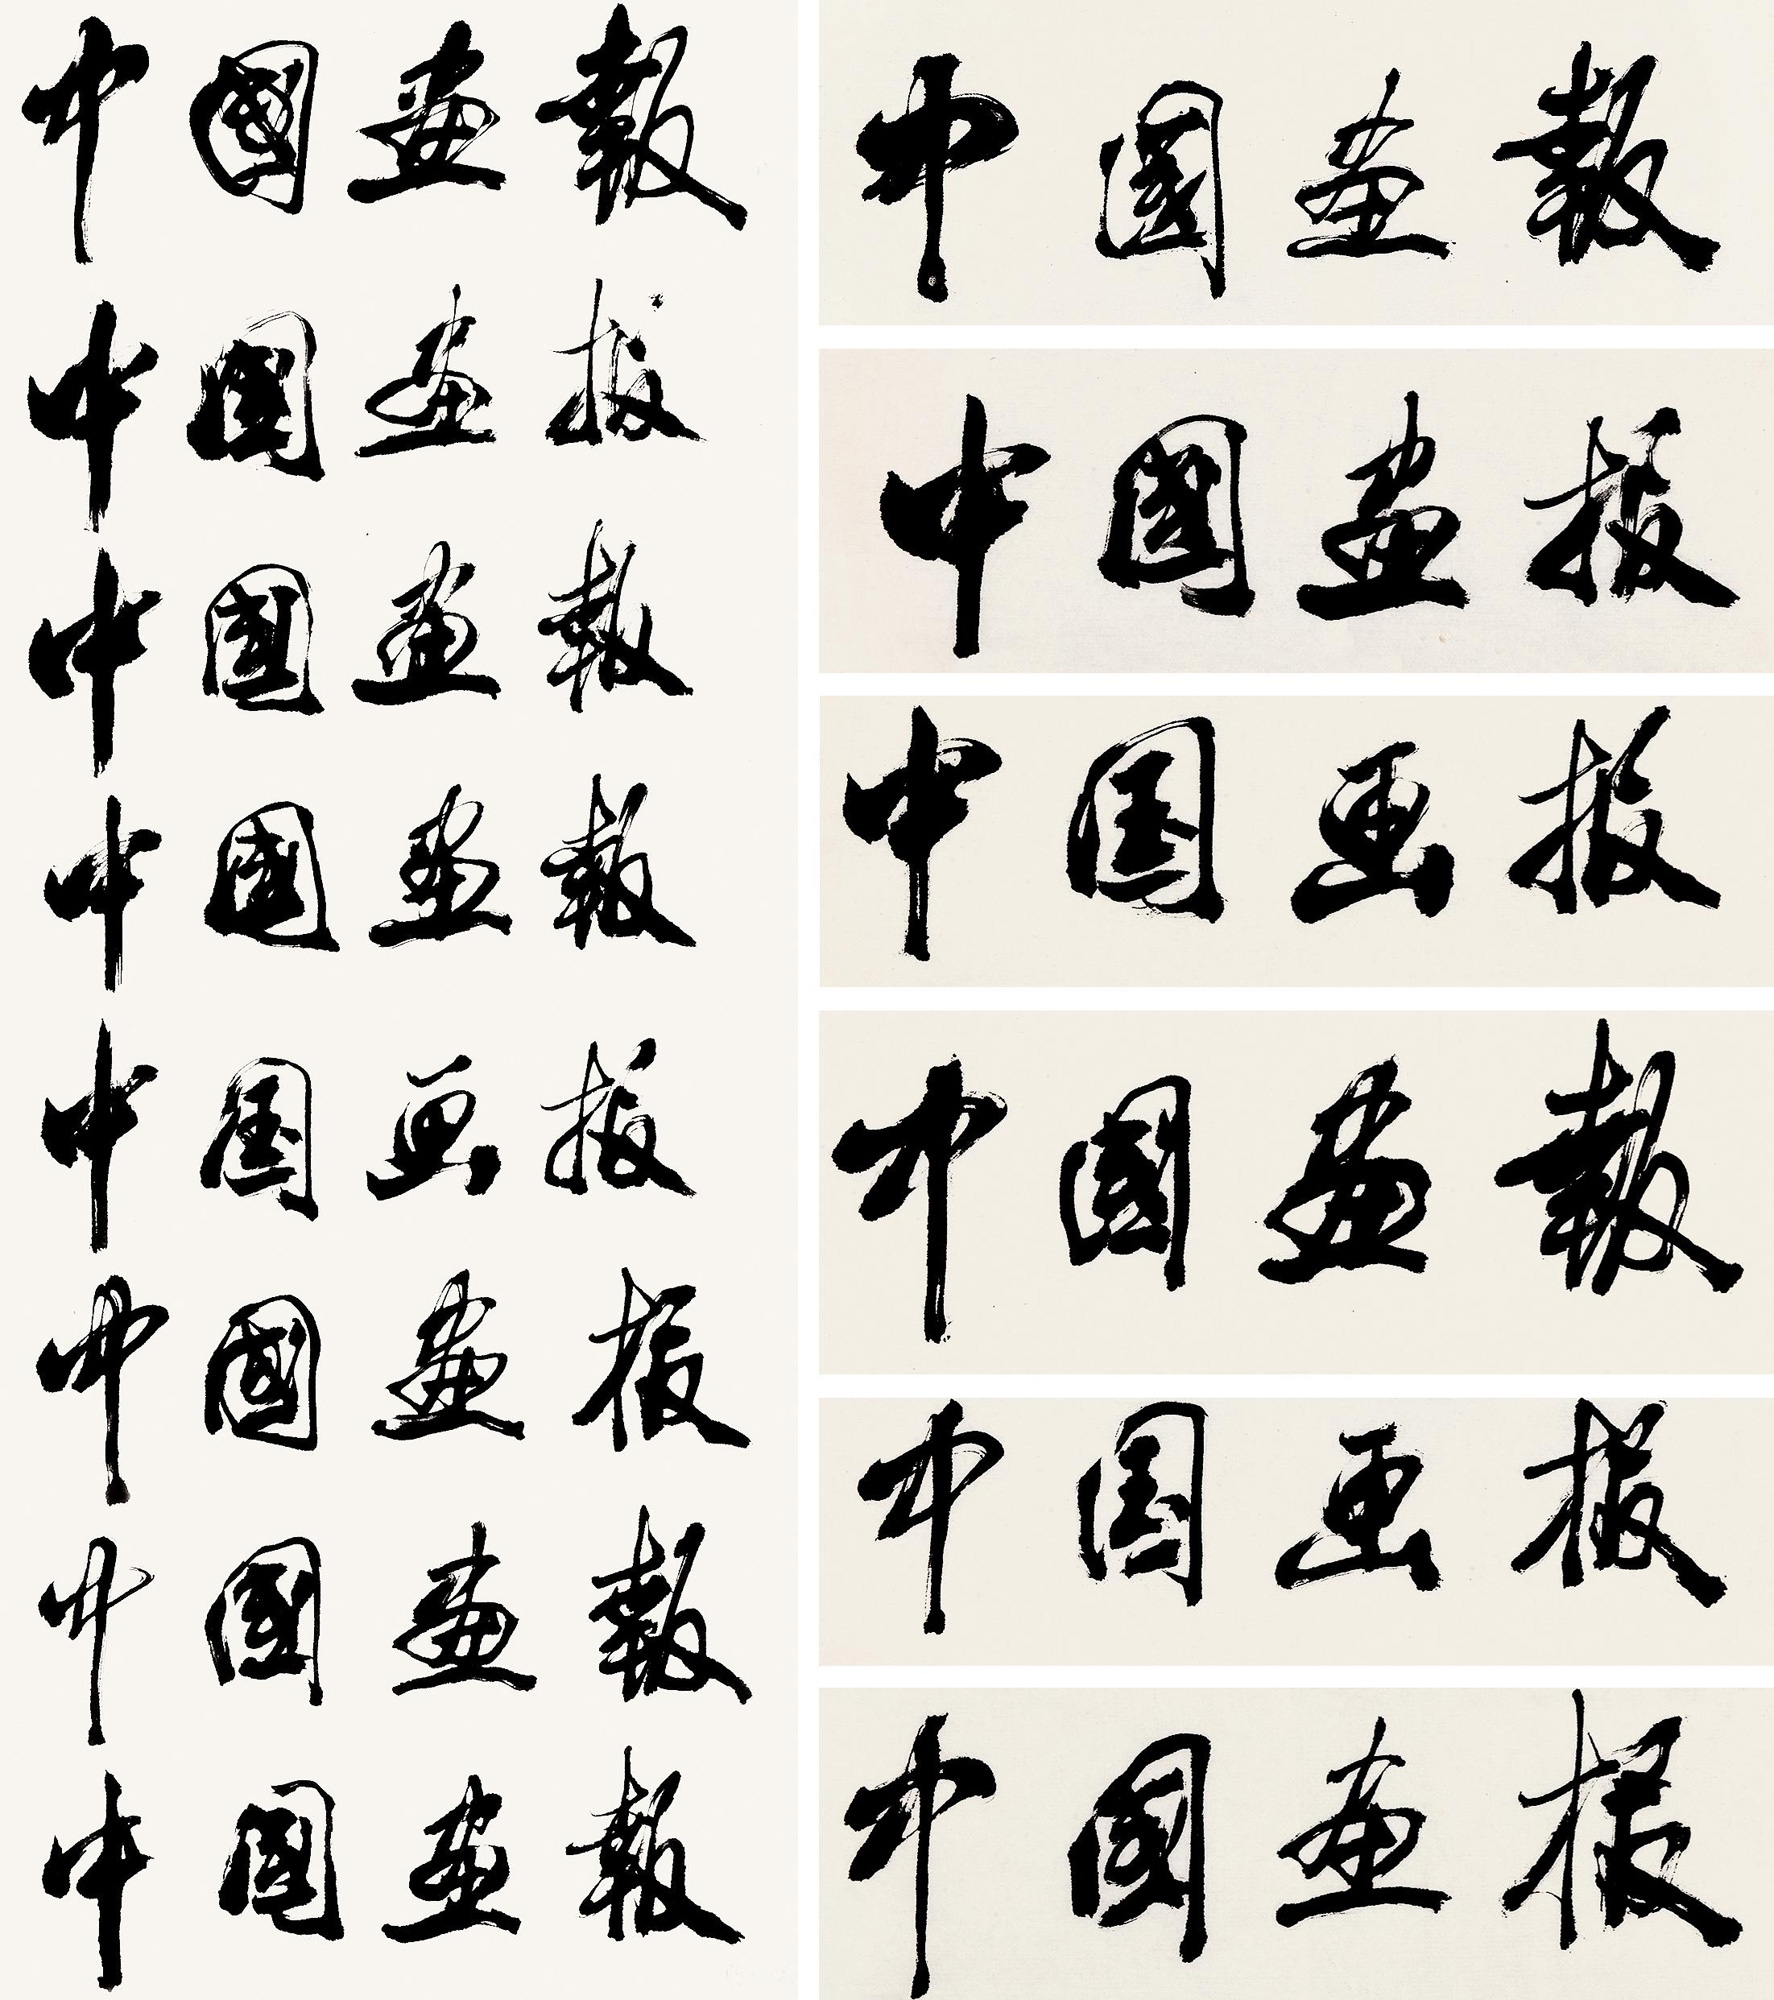 中國畫報
中國畫报
中國畫報
中國畫報
中国画报
中國畫报
中國畫報
中國畫報
中國畫報
中國畫报
中国画报
中國畫報
中国画报
中國畫报